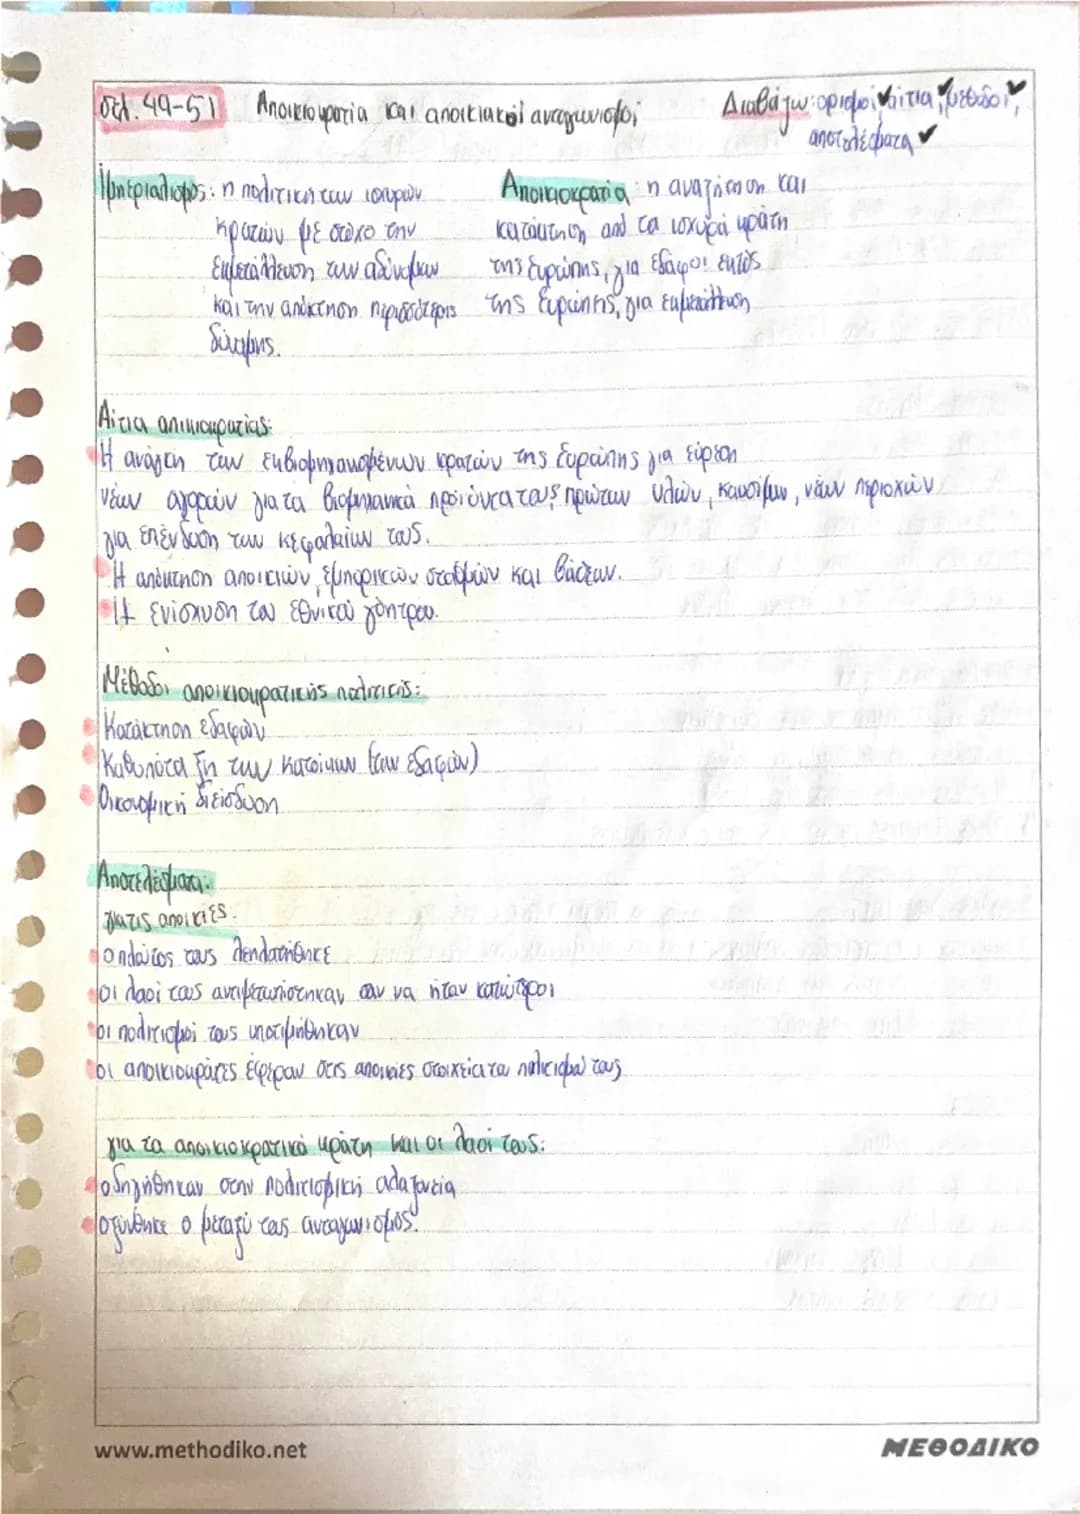 σελ. 49-51 Αποικιοκρατία και αποικιακοί ανταγωνισμοί Διαβάζω: ορισμοί ✔ αίτια ✔, μέθοδοι ✔,
αποτελέσματα ✔
Ιμπεριαλισμός: η πολιτική των ισχυρών
κρατών με στόχο την
εκμετάλλευση των αδύναμων
και την απόκτηση περισσότερης
δύναμης.
Αποικιοκρατία: η αναζήτηση και
κατάκτηση από τα ισχυρά κράτη
της Ευρώπης, για εδάφοι εκτός
της Ευρώπης, για εκμετάλλευση
Αίτια αποικιοκρατίας:
Η ανάγκη των εκβιομηχανισμένων κρατών της Ευρώπης για εύρεση
νέων αγορών για τα βιομηχανικά προϊόντα τους, πρώτων υλών, καυσίμων, νέων περιοχών
για επένδυση των κεφαλαίων τους.
Η απόκτηση αποικιών, εμπορικών σταθμών και βάσεων.
Η ενίσχυση του εθνικού γοήτρου.
Μέθοδοι αποικιοκρατικής πολιτικής:
Κατάκτηση εδαφών
Καθυπόταξη των κατοίκων (των εδαφών)
Οικονομική διείσδυση
Αποτελέσματα:
για τις αποικίες:
ο πλούτος τους λεηλατήθηκε
οι λαοί τους αντιμετωπίστηκαν σαν να ήταν κατώτεροι
οι πολιτισμοί τους υποτιμήθηκαν
οι αποικιοκράτες έφεραν στις αποικίες στοιχεία του πολιτισμού τους
για τα αποικιοκρατικά κράτη και οι λαοί τους:
οδηγήθηκαν στην πολιτισμική αλαζονεία
οξύνθηκε ο μεταξύ τους ανταγωνισμός.
www.methodiko.net ΜΕΘΟΔΙΚΟ